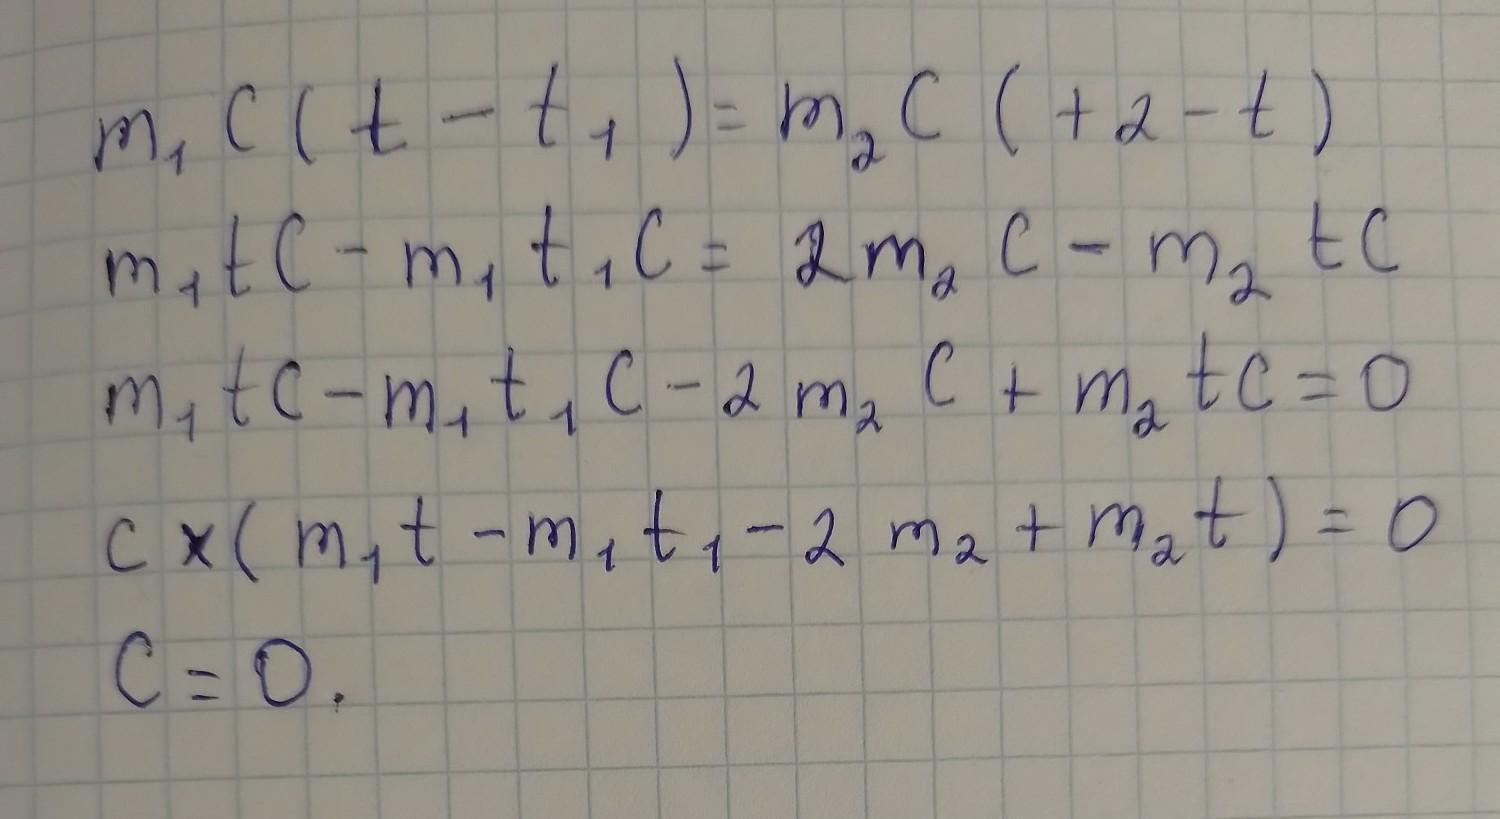 m₁ C ( t - t₁ ) = m₂ C ( +2 - t )
m₁ t C - m₁ t₁ C = 2 m₂ C - m₂ t C
m₁ t C - m₁ t₁ C - 2 m₂ C + m₂ t C = 0
c × ( m₁ t - m₁ t₁ - 2 m₂ + m₂ t ) = 0
C = 0.